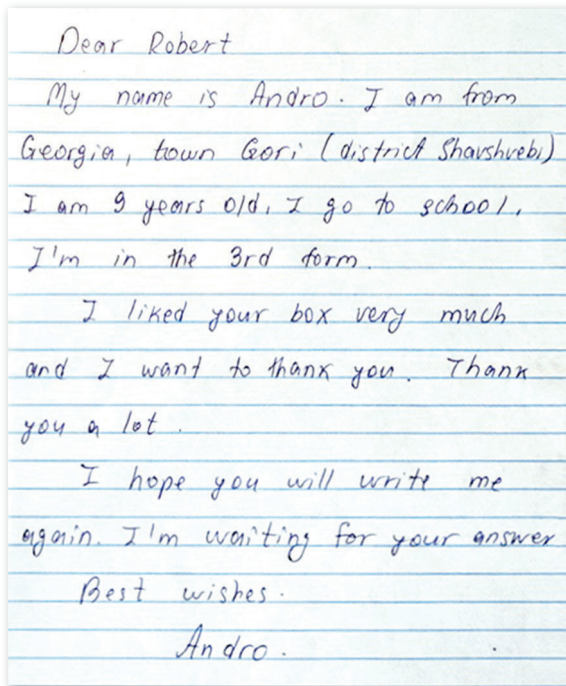 Dear Robert
My name is Andro. I am from
Georgia, town Gori (district Shavshvebi)
I am 9 years old, I go to school,
I'm in the 3rd form.
I liked your box very much
and I want to thank you. Thank
you a lot.
I hope you will write me
again. I'm waiting for your answer
Best wishes.
Andro.